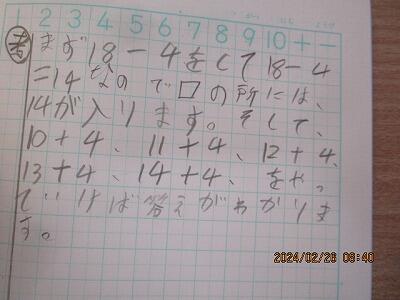 1 2 3 4 5 6 7 8 9 10 + −
考 まず18−4をして18−4
=14なので□の所には、
14が入ります。そして、
10+4、11+4、12+4、
13+4、14+4、をやっ
ていけば答えがわかりま
す。
2024/02/26 09:40